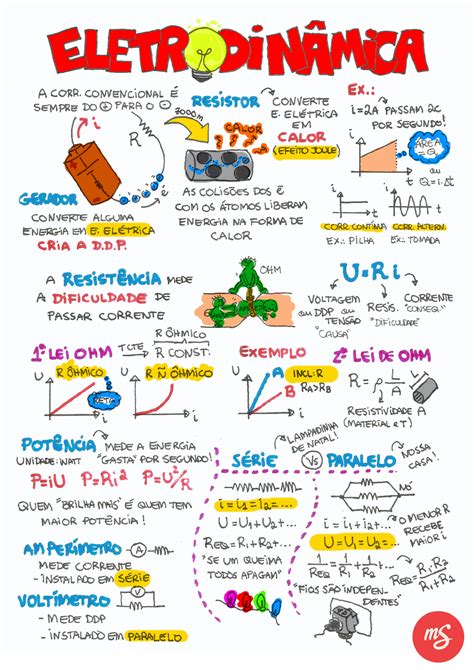 ELETRODINÂMICA
A CORR. CONVENCIONAL É
SEMPRE DO ⊕ PARA O ⊖
i
R
GERADOR
CONVERTE ALGUMA
ENERGIA EM E. ELÉTRICA
CRIA A D.D.P.
RESISTOR
CONVERTE
E. ELÉTRICA
EM
CALOR
(EFEITO JOULE)
ZOOM
CALOR
CALOR
AS COLISÕES DOS é
COM OS ÁTOMOS LIBERAM
ENERGIA NA FORMA DE
CALOR
EX.:
i=2A PASSAM 2C
POR SEGUNDO!
i
t
ÁREA = Q
ou
Q=i.Δt
i
t
i
t
CORR. CONTÍNUA
CORR. ALTERN.
EX.: PILHA
EX.: TOMADA
A RESISTÊNCIA MEDE
A DIFICULDADE DE
PASSAR CORRENTE
OHM
U=Ri
VOLTAGEM
ou DDP ou
TENSÃO
"CAUSA"
RESIS.
"DIFICULDADE"
CORRENTE
"CONSEQ."
1ª LEI OHM
T CTE
R ÔHMICO
R CONST.
U
R ÔHMICO
RETA
i
U
R Ñ ÔHMICO
i
EXEMPLO
U
A
B
i
INCL: R
RA>RB
2ª LEI DE OHM
R = ρ L/A
A
L
RESISTIVIDADE
(MATERIAL e T)
POTÊNCIA MEDE A ENERGIA
UNIDADE: WATT "GASTA" POR SEGUNDO!
P=iU P=Ri² P=U²/R
QUEM "BRILHA MAIS" É QUEM TEM
MAIOR POTÊNCIA!
AMPERÍMETRO
A
MEDE CORRENTE
- INSTALADO EM SÉRIE
VOLTÍMETRO
V
- MEDE DDP
- INSTALADO EM PARALELO
SÉRIE
LAMPADINHA
DE NATAL!
i=i1=i2=...
U=U1+U2...
REQ=R1+R2...
"SE UM QUEIMA
TODOS APAGAM"
VS
PARALELO
NOSSA
CASA!
i=i1+i2+...
O MENOR R
RECEBE
MAIOR i
U=U1=U2=...
1/REQ = 1/R1 + 1/R2 ...
REQ = R1.R2/R1+R2
"FIOS SÃO INDEPEN-
DENTES"
mS